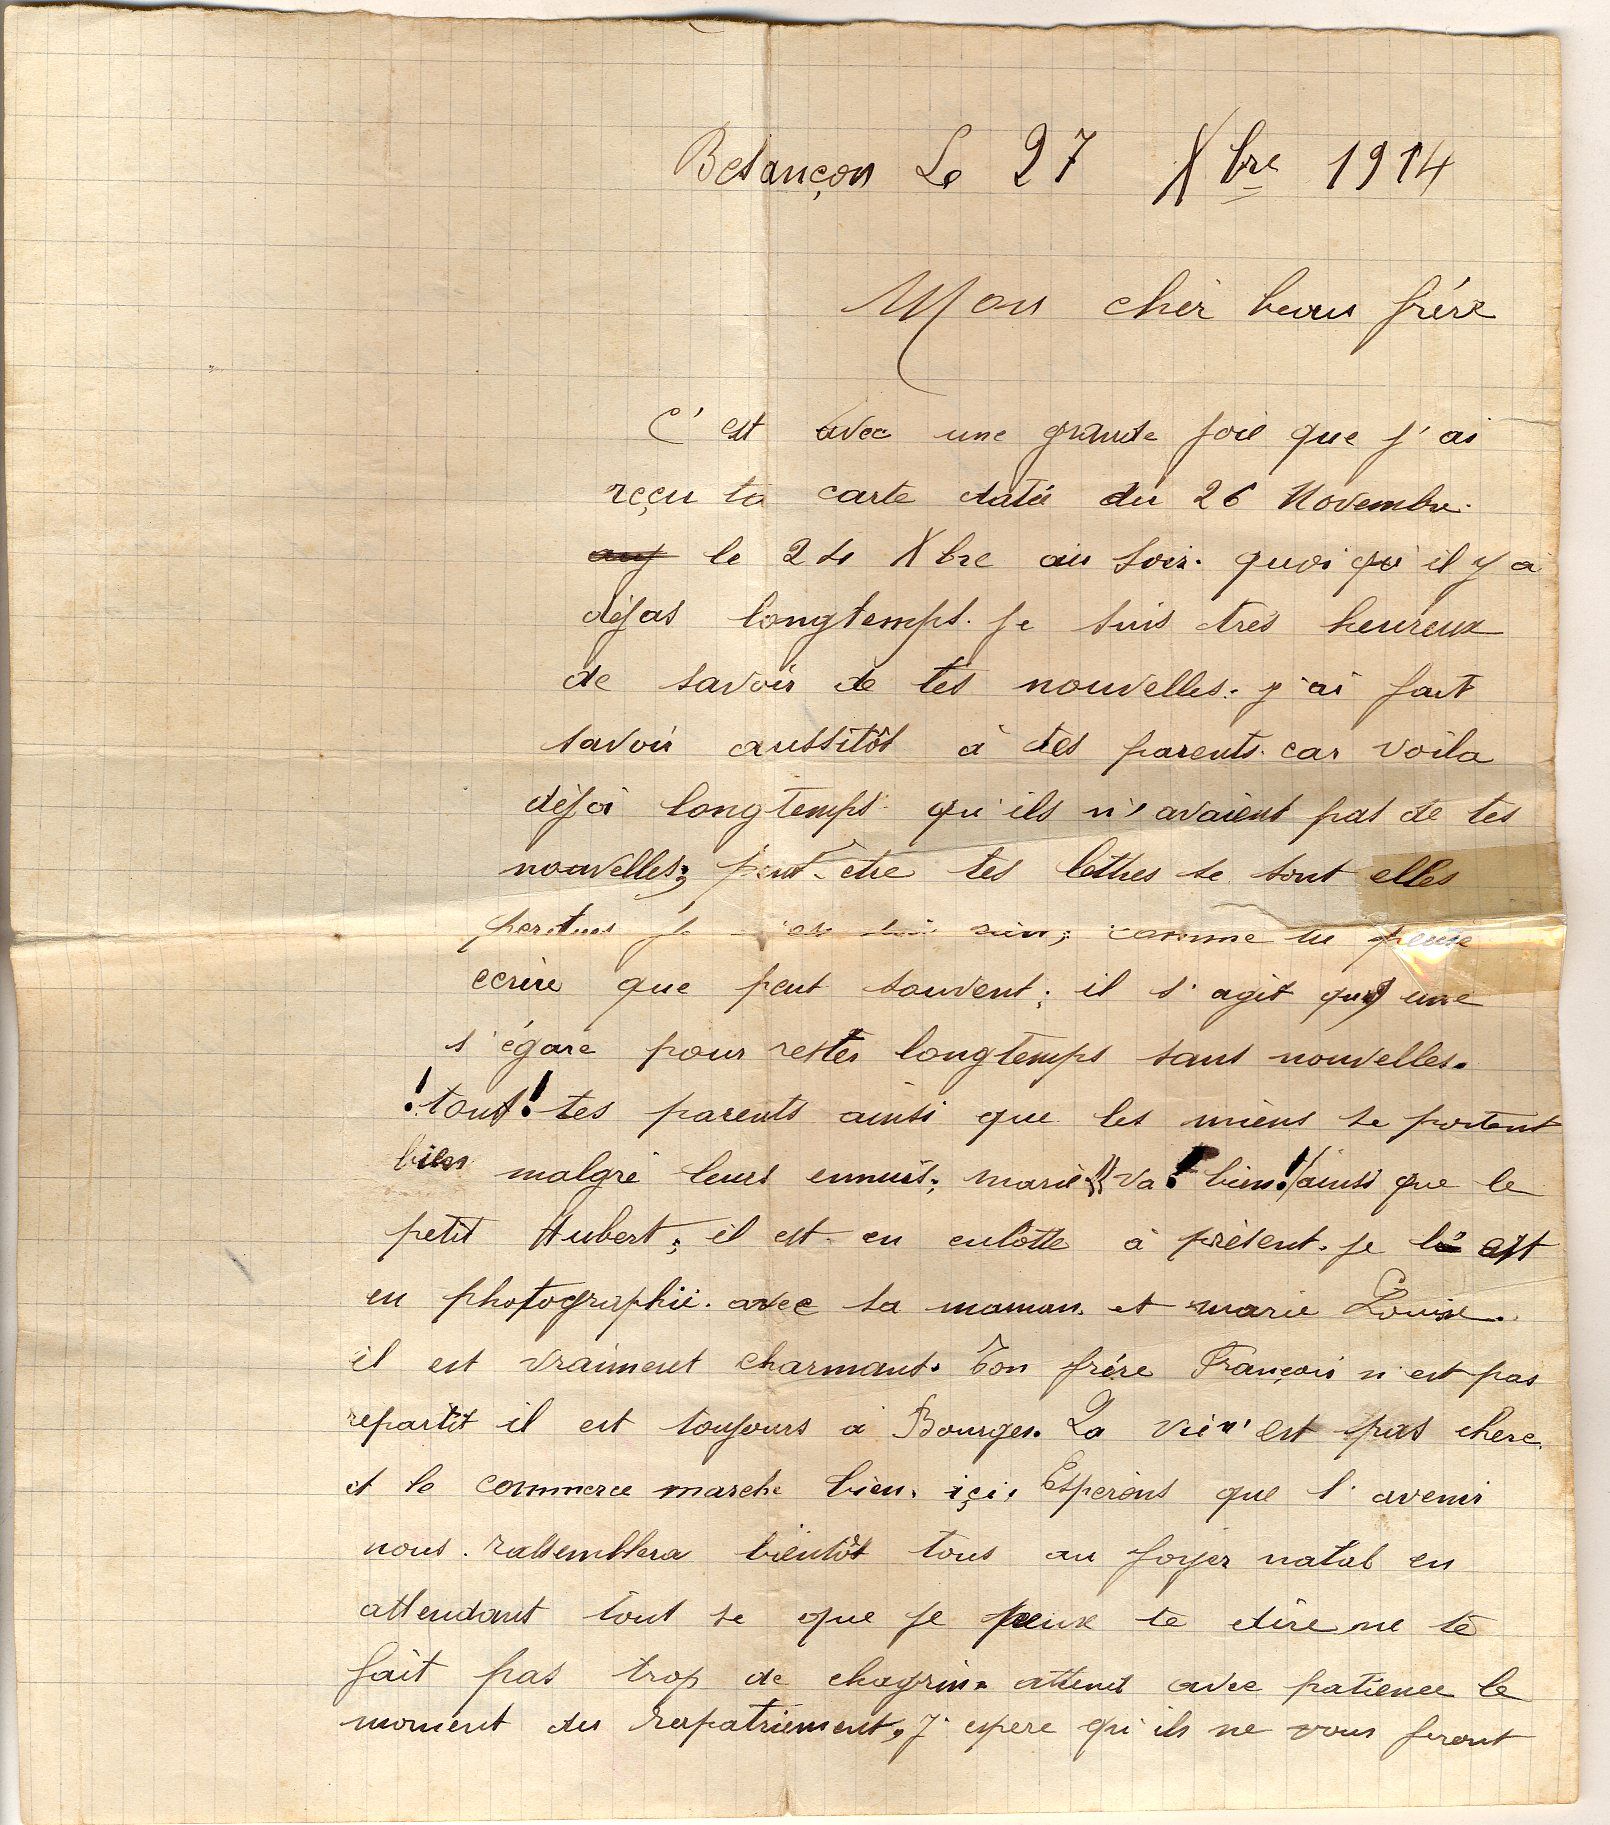 Besançon Le 27 Xbre 1914
Mon cher beau frére
C'est avec une grande joie que j'ai
reçu ta carte datée du 26 Novembre.
le 24 Xbre au soir. quoi qu'il y a
déjas longtemps. je suis très heureux
de savoir de tes nouvelles. j'ai fait
savoir aussitôt à tes parents. car voila
déjà longtemps qu'ils n'avaient pas de tes
nouvelles; peut-etre tes lettres se sont elles
perdues je rien; comme tu peuse
ecrire que peut souvent; il s'agit qu'une
s'égare pour rester longtemps sans nouvelles.
! tout! tes parents ainsi que les miens se portent
bien malgré leurs ennuis; marie va! bien! ainsi que le
petit Hubert; il est en culotte à présent. je l'
en photographie. avec sa maman. et marie Louise.
il est vraiment charmant. Ton frére François n'est pas
repartit il est toujours à Bourges. La vie n'est pas chere
et le commerce marche bien. içi. Esperons que l'avenir
nous. rassemblera bientôt tous au foyer natal en
attendant tout se que je peux te dire ne te
fait pas trop de chagrin. attend avec patience le
moment du rapatriement, j'espere qu'ils ne vous feront